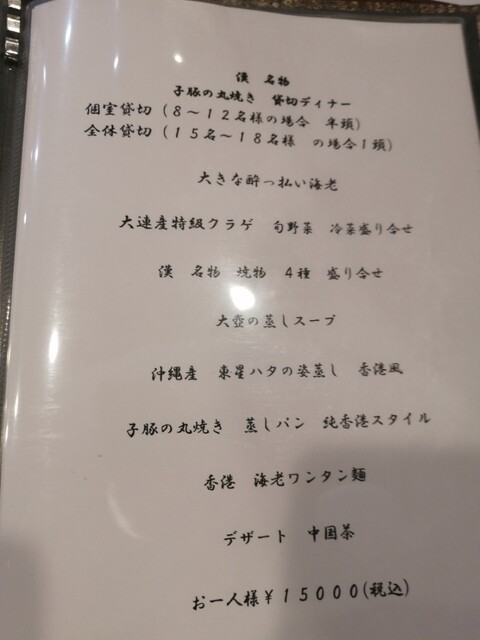 漢　名物
子豚の丸焼き　貸切ディナー
個室貸切（８～１２名様の場合　半頭）
全体貸切（１５名～１８名様　の場合１頭）
大きな酔っ払い海老
大連産特級クラゲ　旬野菜　冷菜盛り合せ
漢　名物　焼物　４種　盛り合せ
大壺の蒸しスープ
沖縄産　東星ハタの姿蒸し　香港風
子豚の丸焼き　蒸しパン　純香港スタイル
香港　海老ワンタン麺
デザート　中国茶
お一人様￥１５０００(税込)